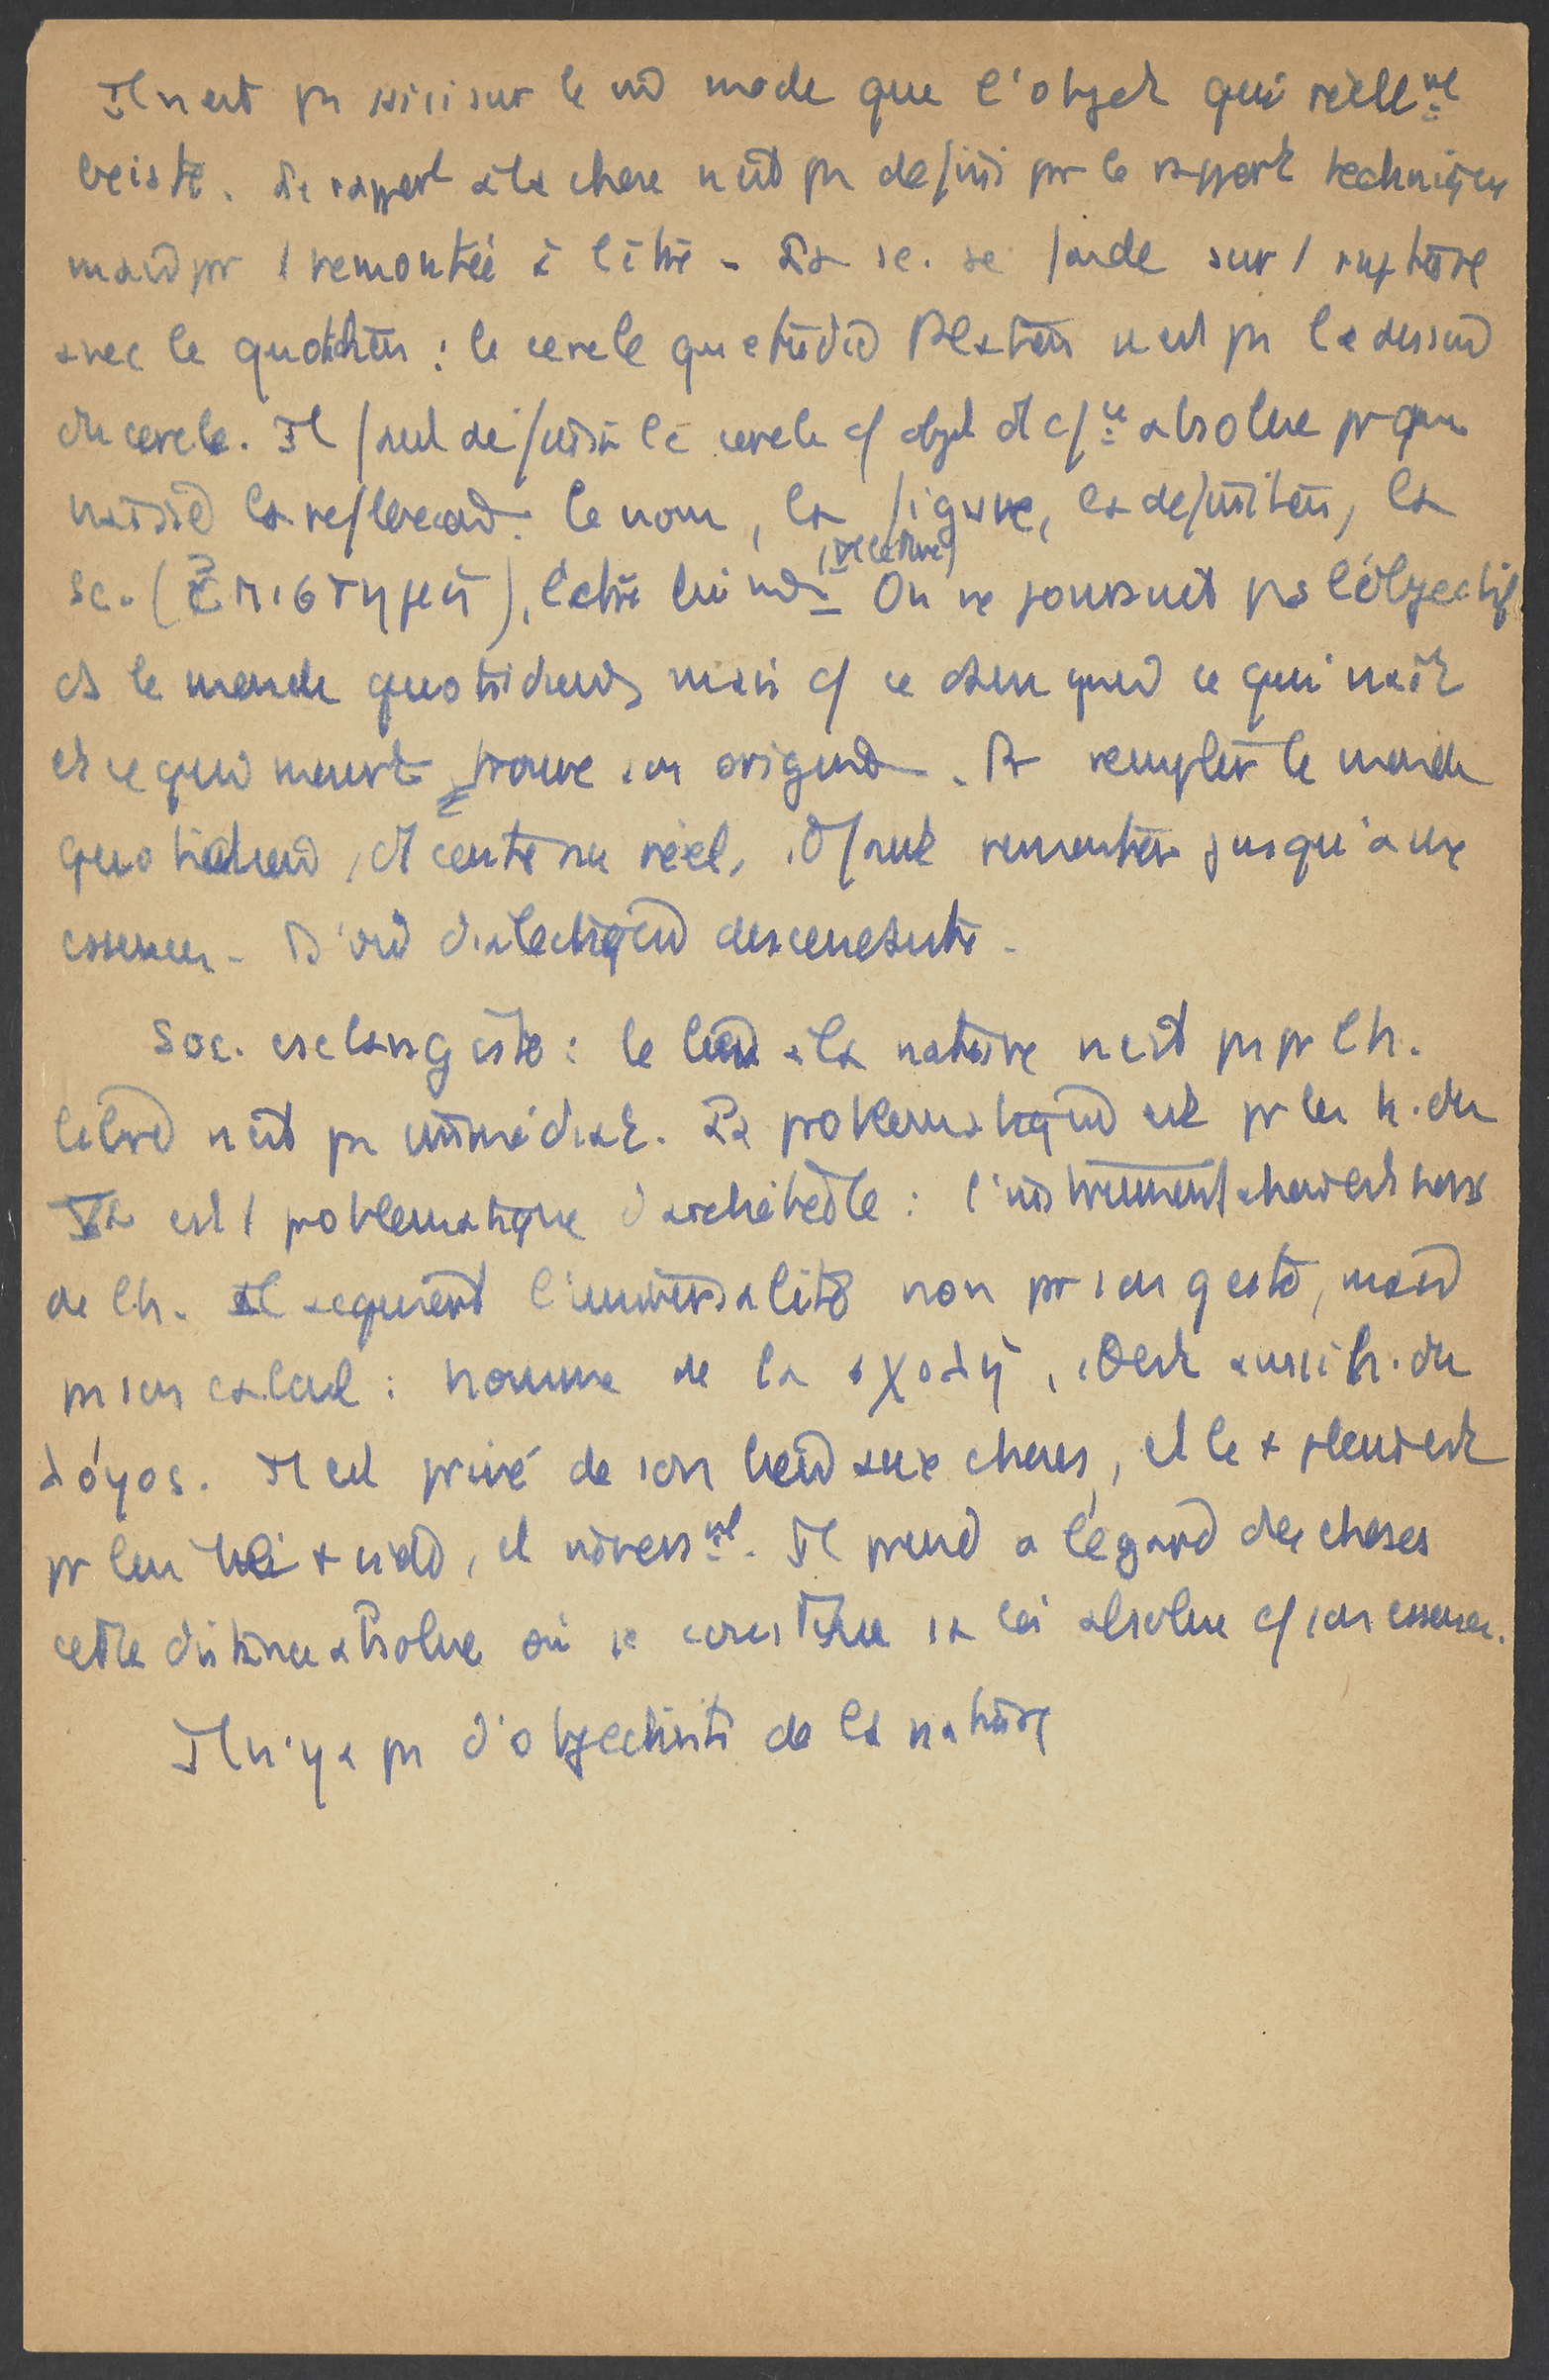 Il n'est pas saisi sur le m̂ mode que l'objet qui réellmt
existe. Le rapport à la chose n'est pas défini par le rapport technique
mais par 1 remontée à l'être. La sc. se fonde sur 1 rupture
avec le quotidien : le cercle qu'étudie Platon n'est pas le dessin
du cercle. Il faut définir le cercle c/ objet et c/ absolue pr que
naisse la reflexion : le nom, la figure, la définition, la
sc. (ἐπιστήμη), l'être lui m̂. On ne poursuit pas l'objectif
ds le monde quotidien, mais c/ ce dans quoi ce qui naît
et ce qui meurt trouve son origine. Pr remplir le monde
quotidien, et contenu réel, il faut remonter jusqu'aux
essences. D'où dialectique descendante.
Soc. esclavagiste : le lien à la nature n'est pas pr l'h.
libre n'est pas immédiat. La problematique est pr les h. du
Ve est 1 problematique d'architecte : l'instrument chez est hors
de l'h. Il acquiert l'universalité non par son geste, mais
par son calcul : homme de la σχολή, il est aussi h. du
λόγος. Il est privé de son lien aux choses, et le
pr lui , et inversmt. Il prend à l'égard des choses
cette distance absolue où se constitue sa loi absolue c/ son essence.
Il n'y a pas d'objectivité de la nature